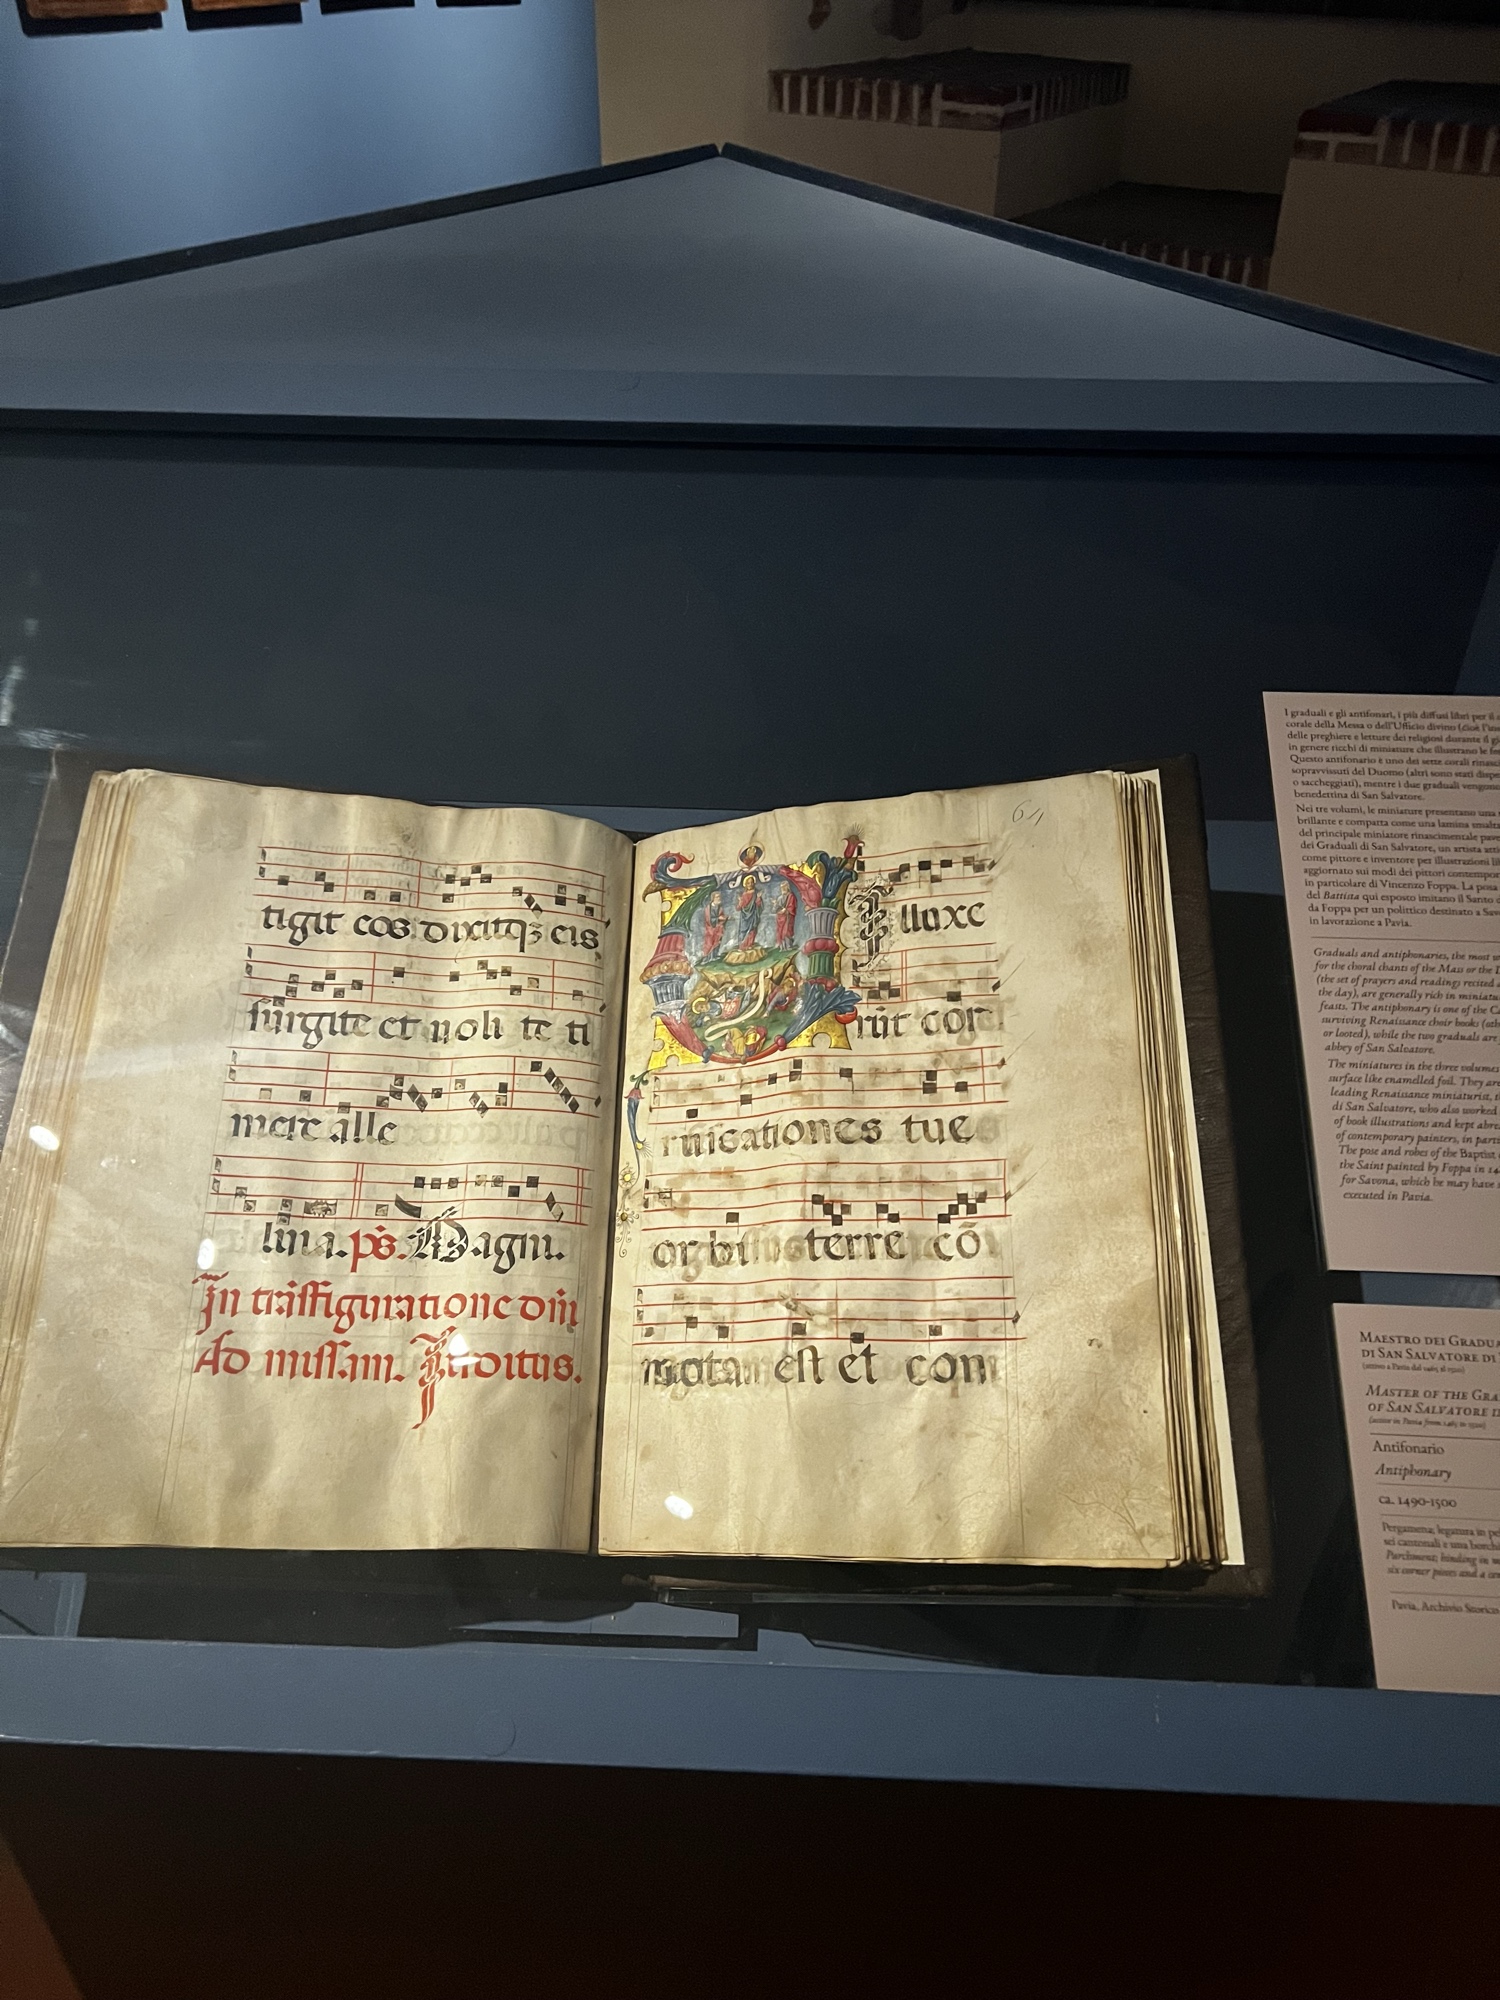 tigit eos dixitqȝ eis
surgite et noli te ti
mere alle
luia. ps. Magni.
In trāsfiguratione dñi
Ad missam. Introitus.
64
Illuxe
rūt cor
ruscationes tue
orbi terre cō
mota est et con
I graduali e gli antifonari, i più diffusi libri per il
corale della Messa o dell'Ufficio divino (cioè l'in
delle preghiere e letture dei religiosi durante il gi
in genere ricchi di miniature che illustrano le fe
Questo antifonario è uno dei sette corali rinasc
sopravvissuti del Duomo (altri sono stati dispe
o saccheggiati), mentre i due graduali vengono
benedettina di San Salvatore.
Nei tre volumi, le miniature presentano una
brillante e compatta come una lamina smalta
del principale miniatore rinascimentale pave
dei Graduali di San Salvatore, un artista atti
come pittore e inventore per illustrazioni li
aggiornato sui modi dei pittori contempor
in particolare di Vincenzo Foppa. La posa
del Battista qui esposto imitano il Santo
da Foppa per un polittico destinato a Sav
in lavorazione a Pavia.
Graduals and antiphonaries, the most w
for the choral chants of the Mass or the D
(the set of prayers and readings recited
the day), are generally rich in miniatu
feasts. The antiphonary is one of the Ca
surviving Renaissance choir books (oth
or looted), while the two graduals are
abbey of San Salvatore.
The miniatures in the three volumes
surface like enamelled foil. They are
leading Renaissance miniaturist, t
di San Salvatore, who also worked
of book illustrations and kept abre
of contemporary painters, in parti
The pose and robes of the Baptist
the Saint painted by Foppa in 14
for Savona, which he may have
executed in Pavia.
Maestro dei Gradua
di San Salvatore di
(attivo a Pavia dal 1465 al 1500)
Master of the Gra
of San Salvatore d
(active in Pavia from 1465 to 1500)
Antifonario
Antiphonary
ca. 1490-1500
Pergamena; legatura in pe
sei cantonali e una borchi
Parchment; binding in
six corner pieces and a cen
Pavia, Archivio Storico